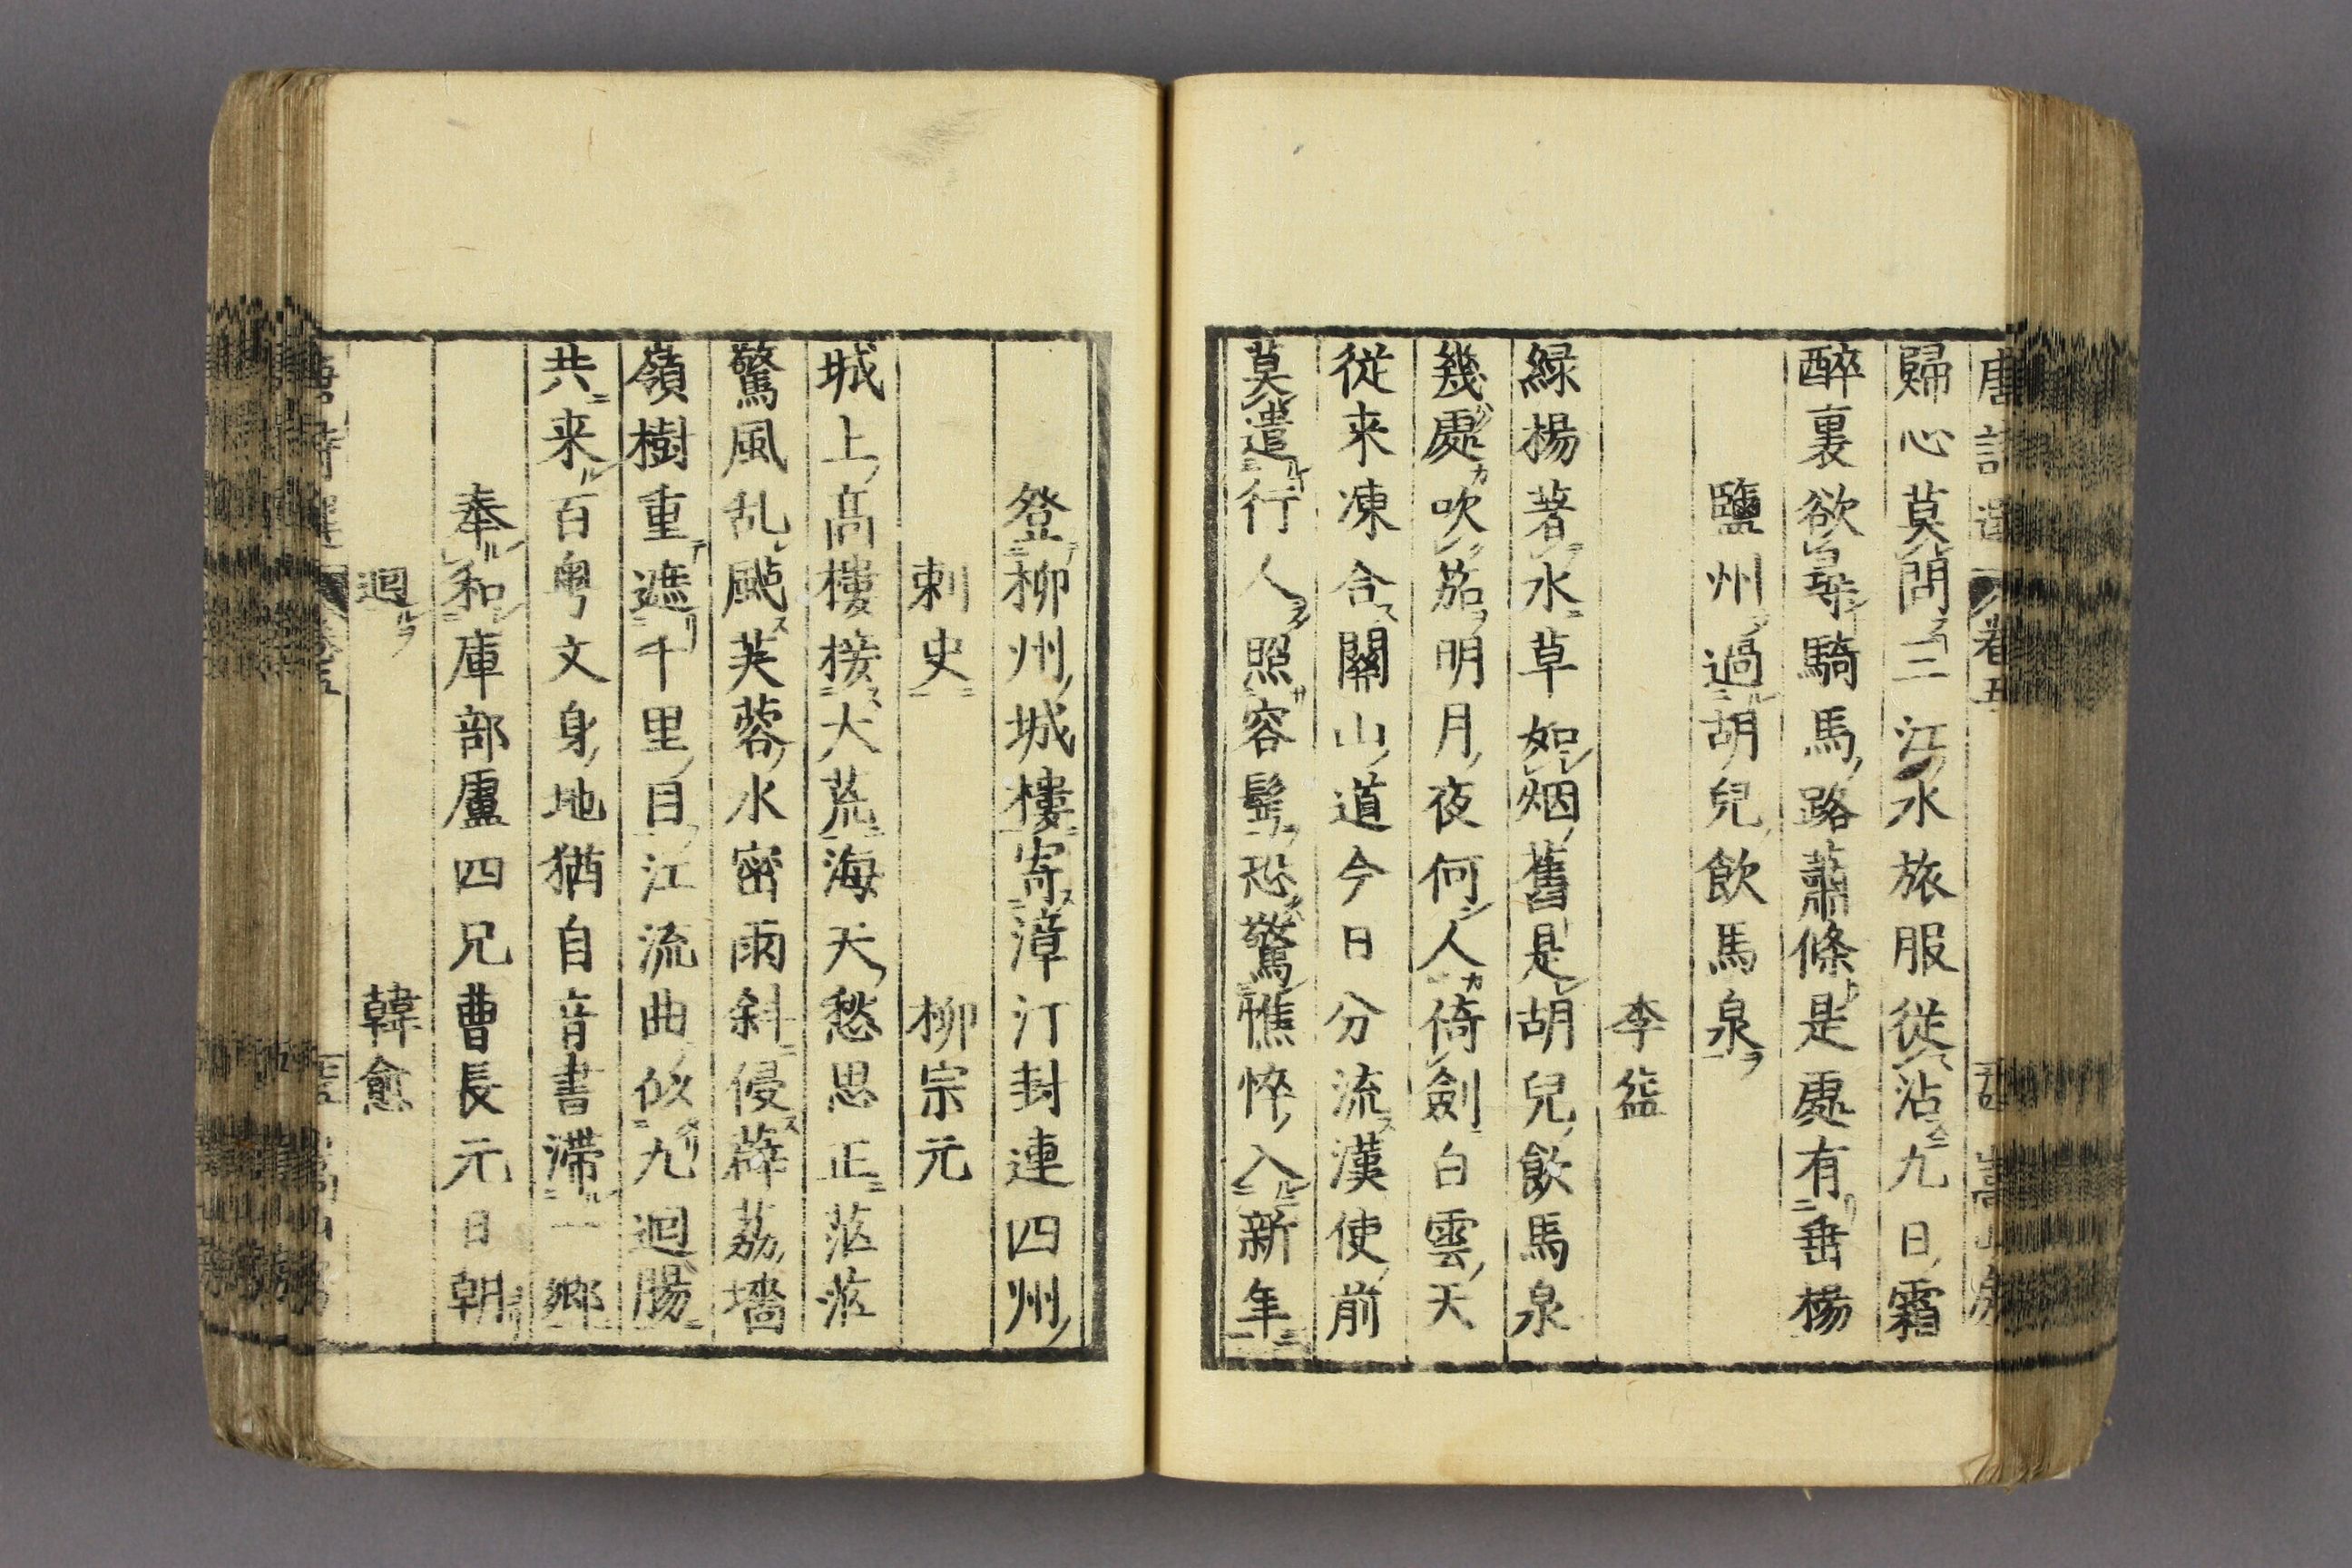 唐詩選 卷五
歸心莫問三江水旅服從沾九日霜
醉裏欲尋騎馬路蕭條是處有垂楊
鹽州過胡兒飲馬泉
李益
緑楊著水草如烟舊是胡兒飲馬泉
幾處吹笳明月夜何人倚劍白雲天
從来凍合關山道今日分流漢使前
莫遣行人照容髩恐驚憔悴入新年
登柳州城樓寄漳汀封連四州
刺史 柳宗元
城上高樓接大荒海天愁思正茫茫
驚風乱颭芙蓉水密雨斜侵薜荔墻
嶺樹重遮千里目江流曲似九迴腸
共来百粤文身地猶自音書滞一鄉
奉和庫部盧四兄曹長元日朝
迴 韓愈